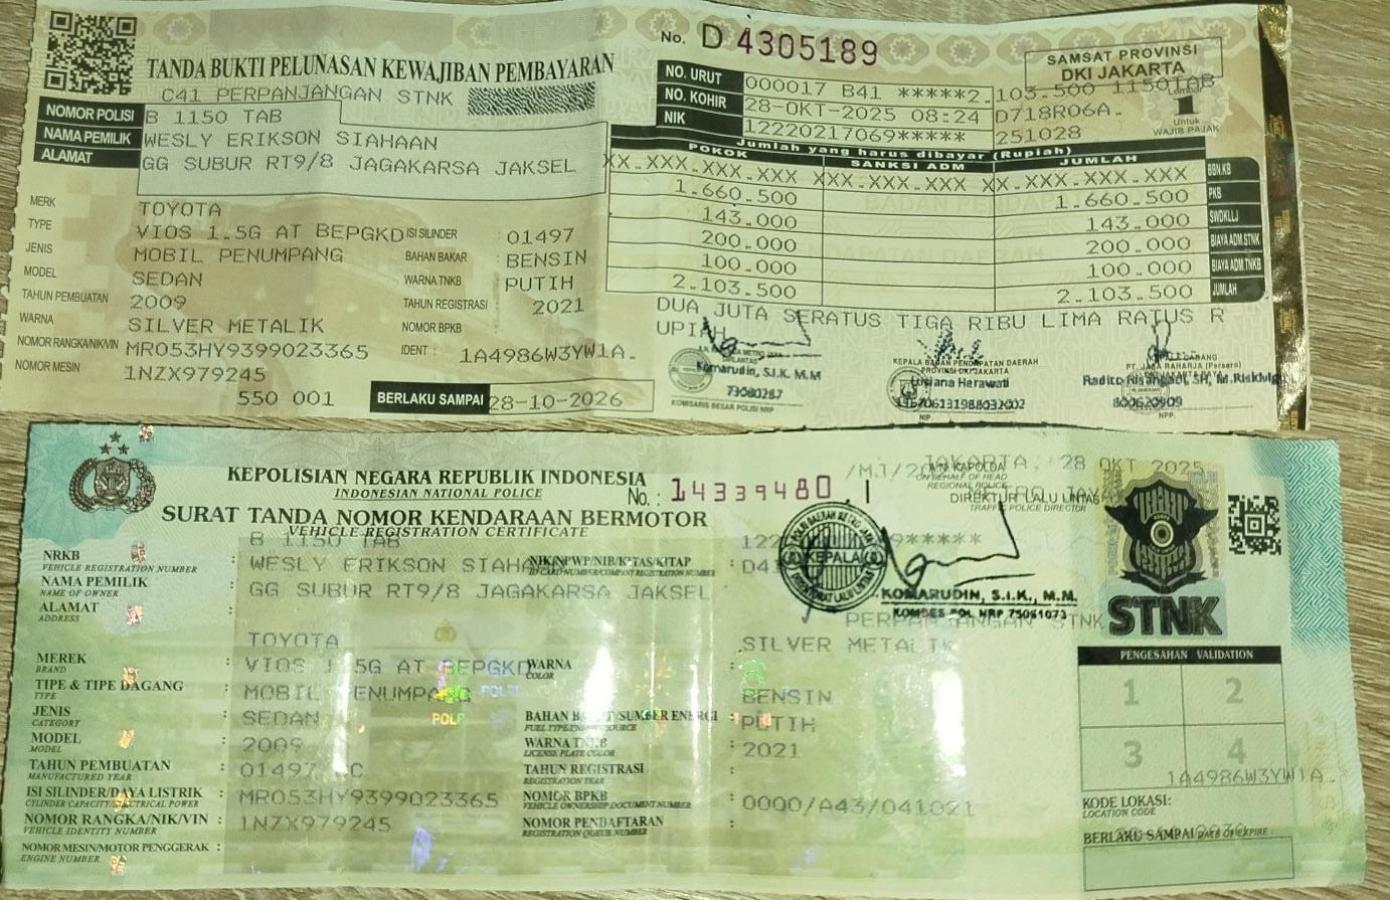 No. D 4305189
SAMSAT PROVINSI
DKI JAKARTA
TANDA BUKTI PELUNASAN KEWAJIBAN PEMBAYARAN
C41 PERPANJANGAN STNK
NO. URUT 000017 B41 *****2.103.500 1150TAB
NO. KOHIR 28-OKT-2025 08:24 D718R06A.
NIK 12220217069***** 251028
1
Untuk
WAJIB PAJAK
NOMOR POLISI B 1150 TAB
NAMA PEMILIK WESLY ERIKSON SIAHAAN
ALAMAT GG SUBUR RT9/8 JAGAKARSA JAKSEL
Jumlah yang harus dibayar (Rupiah)
POKOK SANKSI ADM JUMLAH
XX.XXX.XXX.XXX XXX.XXX.XXX.XXX XX.XXX.XXX.XXX BBN.KB
1.660.500 1.660.500 PKB
143.000 143.000 SWDKLLJ
200.000 200.000 BIAYA ADM.STNK
100.000 100.000 BIAYA ADM.TNKB
2.103.500 2.103.500 JUMLAH
DUA JUTA SERATUS TIGA RIBU LIMA RATUS R
UPIAH
MERK TOYOTA
TYPE VIOS 1.5G AT BEPGKD ISI SILINDER : 01497
JENIS MOBIL PENUMPANG BAHAN BAKAR : BENSIN
MODEL SEDAN WARNA TNKB : PUTIH
TAHUN PEMBUATAN 2009 TAHUN REGISTRASI : 2021
WARNA SILVER METALIK NOMOR BPKB
NOMOR RANGKA/NIK/VIN MR053HY9399023365 IDENT : 1A4986W3YW1A.
NOMOR MESIN 1NZX979245
550 001 BERLAKU SAMPAI 28-10-2026
Komarudin, S.I.K. M.M
KOMISARIS BESAR POLISI NRP
KEPALA BADAN PENDAPATAN DAERAH
PROVINSI DKI JAKARTA
Lusiana Herawati
NIP
PT. JASA RAHARJA (Persero)
NPP.
KEPOLISIAN NEGARA REPUBLIK INDONESIA
INDONESIAN NATIONAL POLICE
No. : 14339480 .I
SURAT TANDA NOMOR KENDARAAN BERMOTOR
VEHICLE REGISTRATION CERTIFICATE
JAKARTA, 28 OKT 2025
A.N KAPOLDA
ON BEHALF OF HEAD
REGIONAL POLICE
DIREKTUR LALU LINTAS
TRAFFIC POLICE DIRECTOR
KEPALA
KOMARUDIN, S.I.K., M.M.
KOMBES POL NRP 75061073
STNK
NRKB : B 1150 TAB
VEHICLE REGISTRATION NUMBER
NAMA PEMILIK : WESLY ERIKSON SIAHAAN
NAME OF OWNER
NIK/NPWP/NIB/KITAS/KITAP
ALAMAT : GG SUBUR RT9/8 JAGAKARSA JAKSEL
ADDRESS
PERPANJANGAN STNK
MEREK : TOYOTA
BRAND
TIPE & TIPE DAGANG : VIOS 1.5G AT BEPGKD
TYPE
WARNA : SILVER METALIK
COLOR
JENIS : MOBIL PENUMPANG
CATEGORY
BAHAN BAKAR/SUMBER ENERGI : BENSIN
MODEL : SEDAN
MODEL
WARNA TNKB : PUTIH
LICENSE PLATE COLOR
TAHUN PEMBUATAN : 2009
MANUFACTURED YEAR
TAHUN REGISTRASI : 2021
REGISTRATION YEAR
ISI SILINDER/DAYA LISTRIK : 01497 CC
CYLINDER CAPACITY/ELECTRICAL POWER
NOMOR BPKB
VEHICLE OWNERSHIP DOCUMENT NUMBER
NOMOR RANGKA/NIK/VIN : MR053HY9399023365
VEHICLE IDENTITY NUMBER
NOMOR PENDAFTARAN : 0000/A43/041021
REGISTRATION QUEUE NUMBER
NOMOR MESIN/MOTOR PENGGERAK : 1NZX979245
ENGINE NUMBER
PENGESAHAN VALIDATION
1 2
3 4
1A4986W3YW1A.
KODE LOKASI:
LOCATION CODE
BERLAKU SAMPAI DATE OF EXPIRE